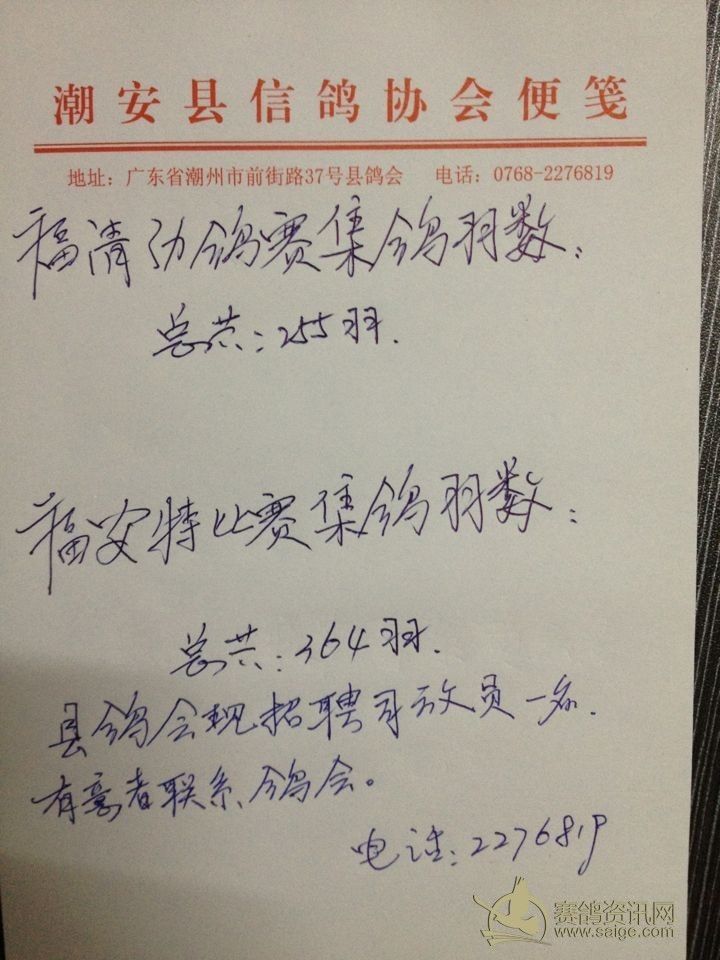 潮安县信鸽协会便笺
地址：广东省潮州市前街路37号县鸽会 电话：0768-2276819
福清幼鸽赛集鸽羽数：
总共：255羽.
福安特比赛集鸽羽数：
总共：364羽.
县鸽会现招聘司放员一名.
有意者联系鸽会。
电话：2276819
赛鸽资讯网
www.saige.com